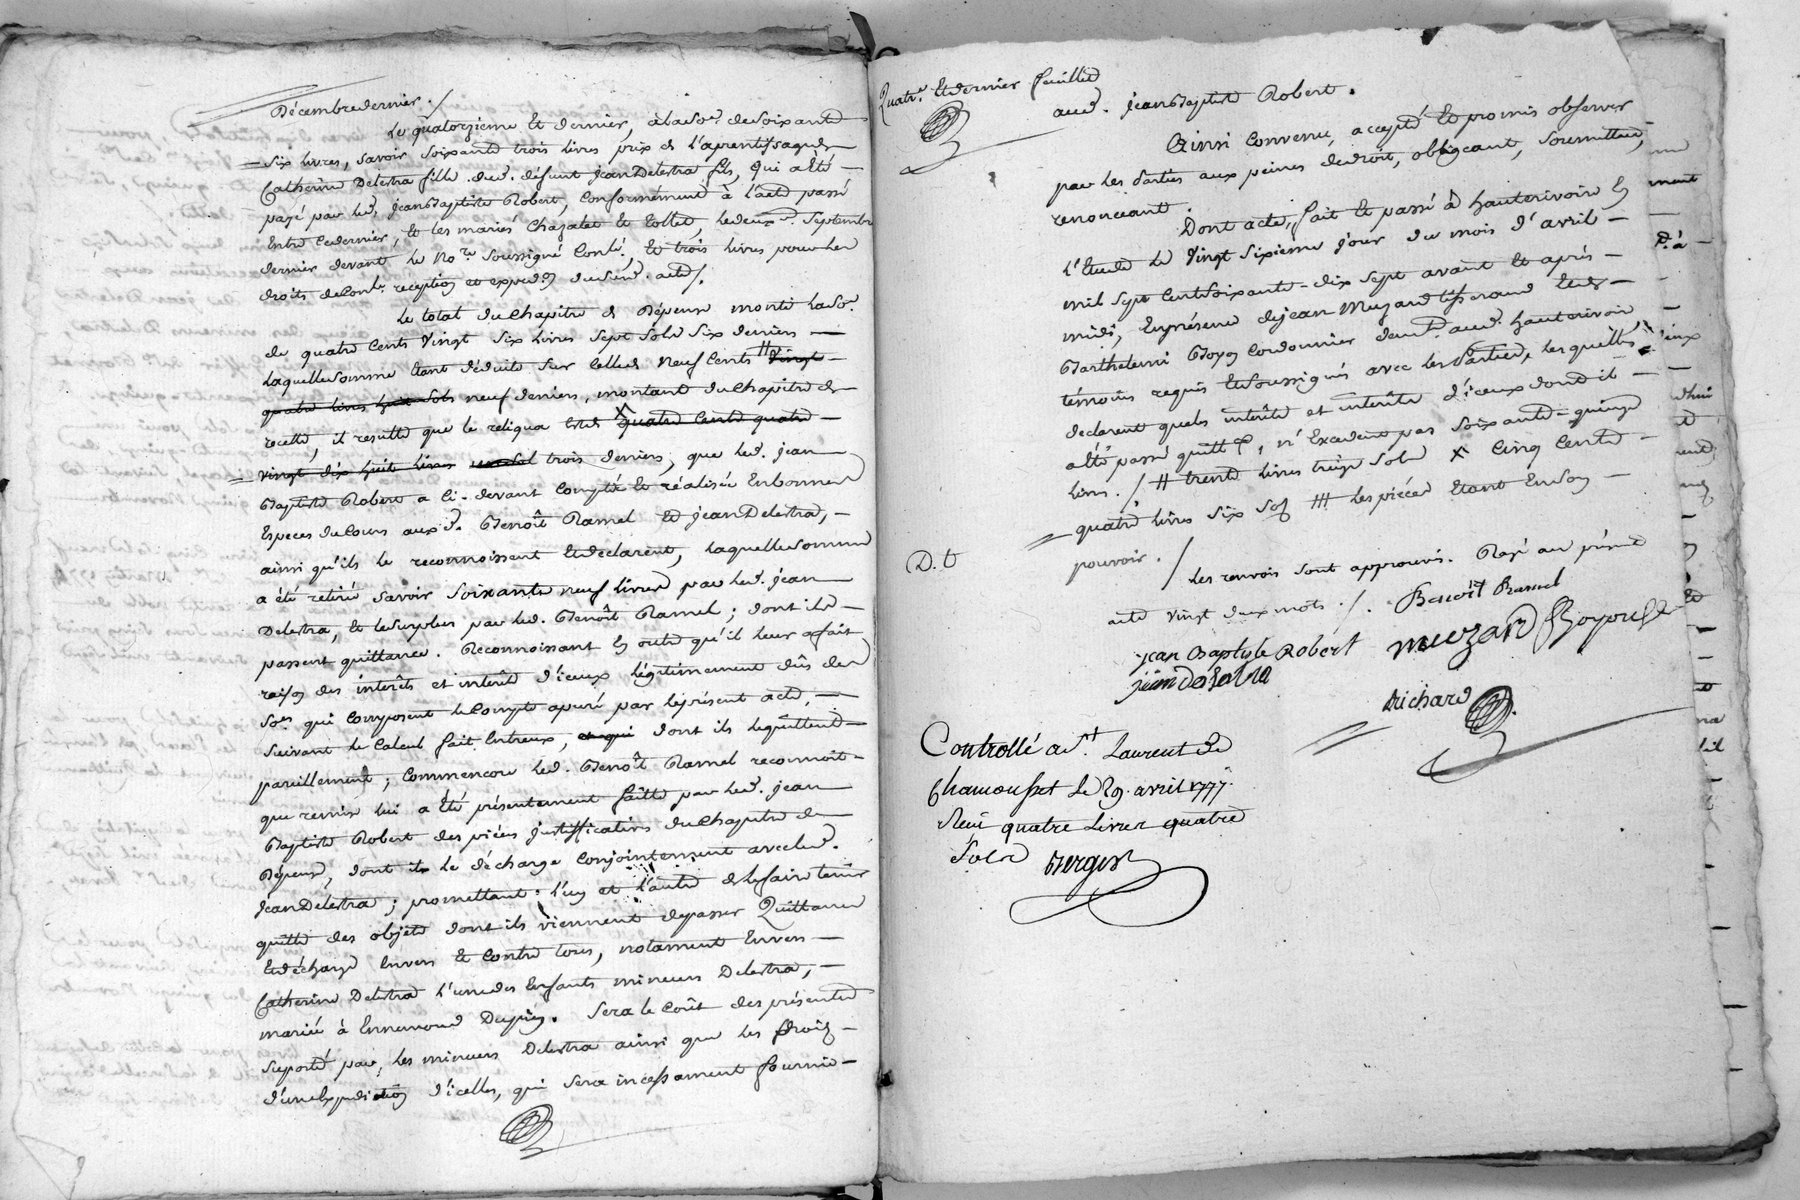 Décembre dernier ./
Le quatorzieme Et dernier, à la so.e de soixante
six livres, savoir soixante trois livres prix de l'aprentissage de
Catherine Delestra fille dud. défunt jean Delestra fils, qui a Eté
payé par led. jean Baptiste Robert, conformément à l'acte passé
Entre ce dernier, Et les mariés Chazalet Et Tollet, le deux.e Septembre
dernier devant le No.re soussigné Conlé, Et trois livres pour les
droits de Conle. reception et expedon du send. acte /.
Le total du chapitre de Dépense monte la so.e
de quatre Cents Vingt Six livres Sept Sols Six deniers
laquelle somme Etant déduite sur celle de Neuf Cents # Vingt
quatre livres huit sols neuf deniers, montant du chapitre de
recette, il resulte que le reliqua Est de X quatre Cents quatre
vingt dix huit livres un sol trois deniers, que led. jean
Baptiste Robert a ci-devant compté Et réalisée En bonnes
Especes du Cours auxd. Benoît Ramel Et jean Delestra,
ainsi qu'ils le reconnoissent Et declarent, laquelle somme
a été retirée savoir soixante neuf livres par led. jean
Delestra, Et le surplus par led. Benoît Ramel ; dont ils
passent quittance. Reconnoissant En outre qu'il leur a fait
raison des interêts et interêts d'iceux légitimement dûs des
so.es qui composent le Compte apuré par le présent acte,
suivant le Calcul fait Entreux, et qui dont ils le quittent
pareillement ; Comm'encore led. Benoît Ramel reconnoit
que remise lui a Eté présentement faitte par led. jean
Baptiste Robert des pièces justifficatives du chapitre de
Dépense, dont il le décharge conjointement avec led.
jean Delestra ; promettant l'un et l'autre de le faire tenir
quitte des objets dont ils viennent de passer Quittance
Et décharge Envers Et Contre tous, notament Envers
Catherine Delestra l'une des Enfants mineurs Delestra,
mariée à Ennemond Dupin. Sera le coût des présentes
suporté par les mineurs Delestra ainsi que les froix
d'une Expedition d'icelles, qui sera incessament fournie
Quatr.e Et dernier feuillet
aud. jean Baptiste Robert.
Ainsi Convenu, accepté Et promis observer
par les Parties aux peines de droit, obligeant, soumettant,
renonceant.
Dont acte, fait Et passé à hauterivoire En
l'Etude le Vingt Sixieme jour du mois d'avril
mil sept Cent soixante-dix sept avant Et après
midi, En présence de jean Muzard tisserand Et de
Barthelemi Boyon Cordonnier demts. aud. hauterivoire
témoins requis Et soussignés avec les Parties, lesquelles
declarent que les interêts et interêts d'iceux dont il
a été passé quitt.ce, n'Excedent pas soixante-quinze
livres. / # trente livres treize sols X Cinq Cents
quatre livres six sols ### les pièces Etant En son
D. U pouvoir. /
Les renvois sont approuvés. Rayé au présent
acte vingt deux mots ./.
Benoît Ramel
jean Baptiste Robert muzard Boyon
jean Delestra
Richard
Controllé a St Laurent de
Chamousset Le 29. avril 1777.
Reçu quatre Livres quatre
Sols Berger